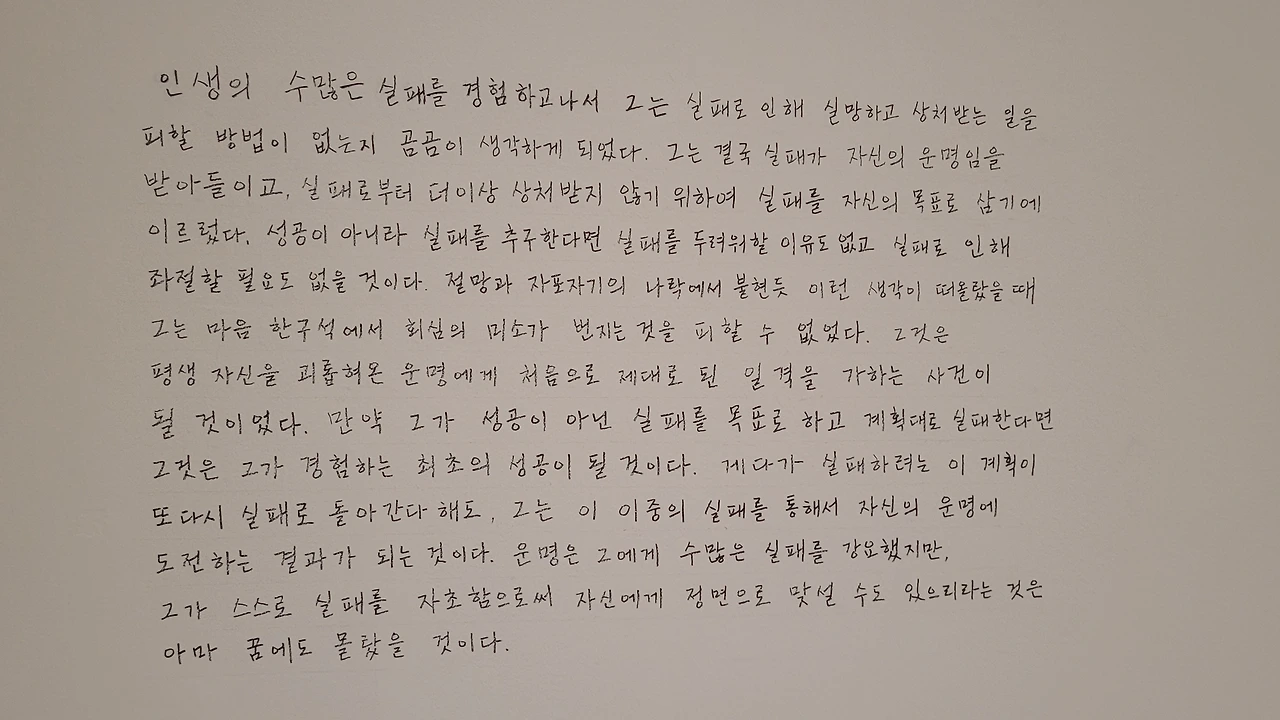 인생의 수많은 실패를 경험하고나서 그는 실패로 인해 실망하고 상처받는 일을
피할 방법이 없는지 곰곰이 생각하게 되었다. 그는 결국 실패가 자신의 운명임을
받아들이고, 실패로부터 더이상 상처받지 않기 위하여 실패를 자신의 목표로 삼기에
이르렀다. 성공이 아니라 실패를 추구한다면 실패를 두려워할 이유도 없고 실패로 인해
좌절할 필요도 없을 것이다. 절망과 자포자기의 나락에서 불현듯 이런 생각이 떠올랐을 때
그는 마음 한구석에서 회심의 미소가 번지는 것을 피할 수 없었다. 그것은
평생 자신을 괴롭혀온 운명에게 처음으로 제대로 된 일격을 가하는 사건이
될 것이었다. 만약 그가 성공이 아닌 실패를 목표로 하고 계획대로 실패한다면
그것은 그가 경험하는 최초의 성공이 될 것이다. 게다가 실패하려는 이 계획이
또다시 실패로 돌아간다 해도, 그는 이 이중의 실패를 통해서 자신의 운명에
도전하는 결과가 되는 것이다. 운명은 그에게 수많은 실패를 강요했지만,
그가 스스로 실패를 자초함으로써 자신에게 정면으로 맞설 수도 있으리라는 것은
아마 꿈에도 몰랐을 것이다.